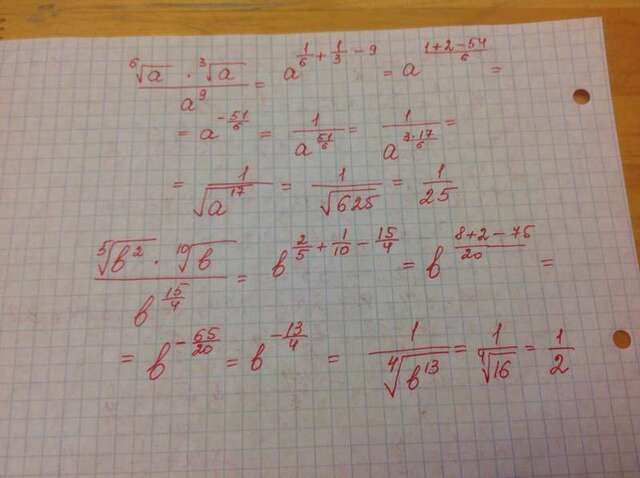 ⁶√a · ³√a / a⁹ = a^(1/6 + 1/3 − 9) = a^((1+2−54)/6) =
= a^(−51/6) = 1/a^(51/6) = 1/a^(3·17/6) =
= 1/√(a¹⁷) = 1/√625 = 1/25
⁵√(в²) · ¹⁰√в / в^(15/4) = в^(2/5 + 1/10 − 15/4) = в^((8+2−75)/20) =
= в^(−65/20) = в^(−13/4) = 1/⁴√(в¹³) = 1/⁴√16 = 1/2